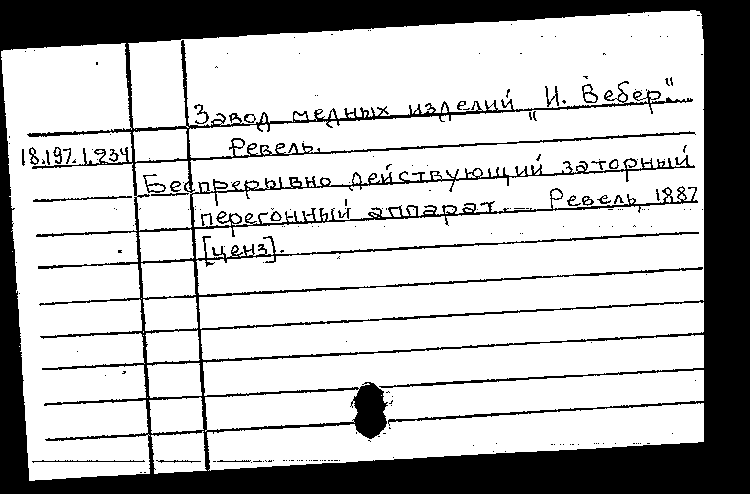 Завод медных изделий „И. Вебер".
Ревель.
18.197.1.234
Беспрерывно действующий заторный
перегонный аппарат. — Ревель, 1887
[ценз].